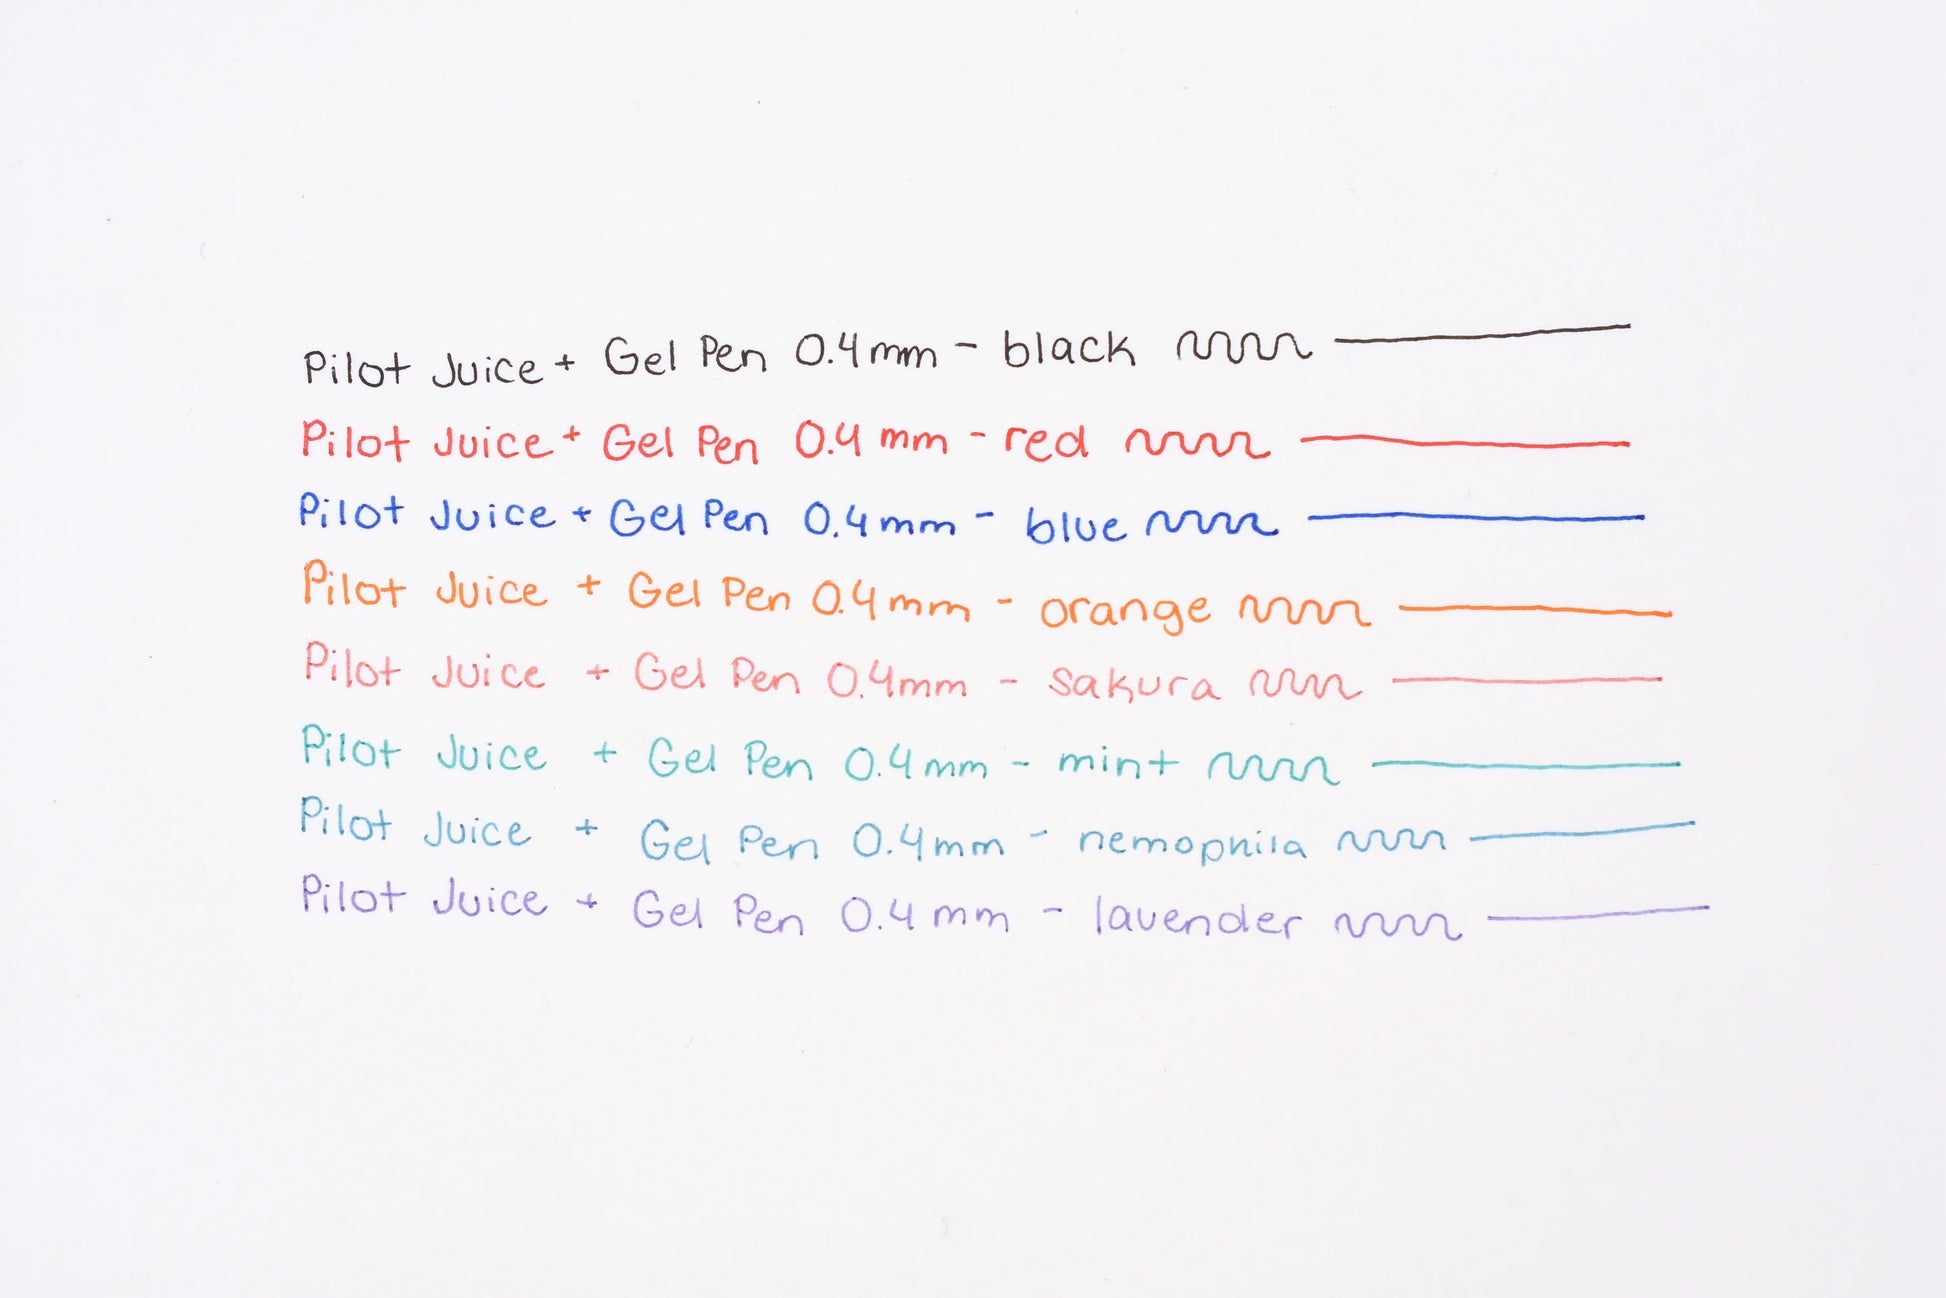 Pilot Juice + Gel Pen 0.4mm - black
Pilot Juice + Gel Pen 0.4 mm - red
Pilot Juice + Gel Pen 0.4mm - blue
Pilot Juice + Gel Pen 0.4mm - orange
Pilot Juice + Gel Pen 0.4mm - sakura
Pilot Juice + Gel Pen 0.4mm - mint
Pilot Juice + Gel Pen 0.4mm - nemophila
Pilot Juice + Gel Pen 0.4 mm - lavender